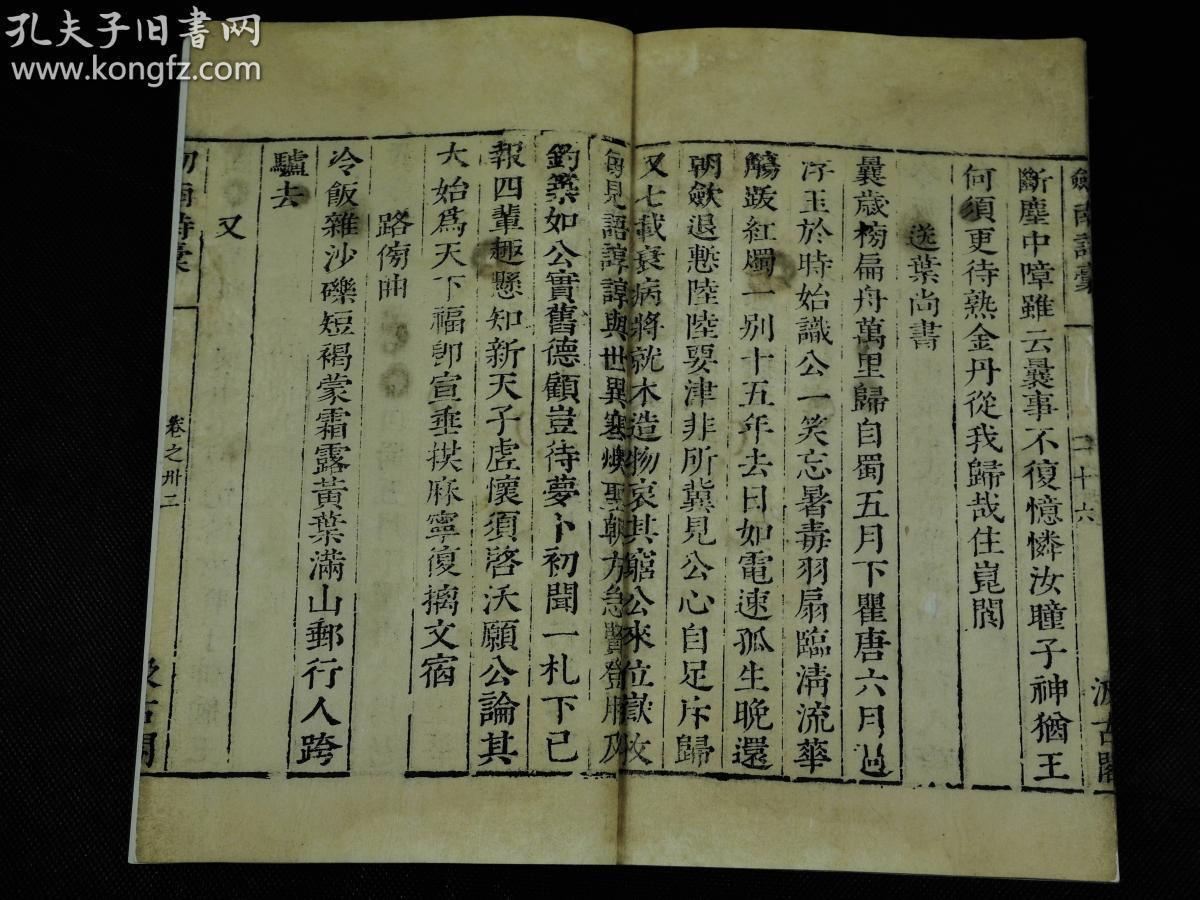 孔夫子旧书网
www.kongfz.com
劒南詩稾
二十六
汲古閣
斷塵中暲雖云曩事不復憶憐汝瞳子神猶王
何須更待熟金丹從我歸哉住崑閬
送葉尚書
曩歲榜扁舟萬里歸自蜀五月下瞿唐六月過
浮玉於時始識公一笑忘暑毒羽扇臨淸流華
觴跋紅燭一别十五年去日如電速孤生晚還
朝歛退慙陸陸要津非所冀見公心自足斥歸
又七載衰病將就木造物哀其窮公來位嶽牧
每見語諄諄與世異寒燠聖朝方急賢登用及
釣築如公實舊德顧豈待夢卜初聞一札下已
報四輩趣懸知新天子虛懷須啓沃願公論其
大始爲天下福卽宣垂拱麻寧復摛文宿
路傍曲
冷飯雜沙礫短褐蒙霜露黄葉滿山郵行人跨
驢去
又
卷之卅二
汲古閣